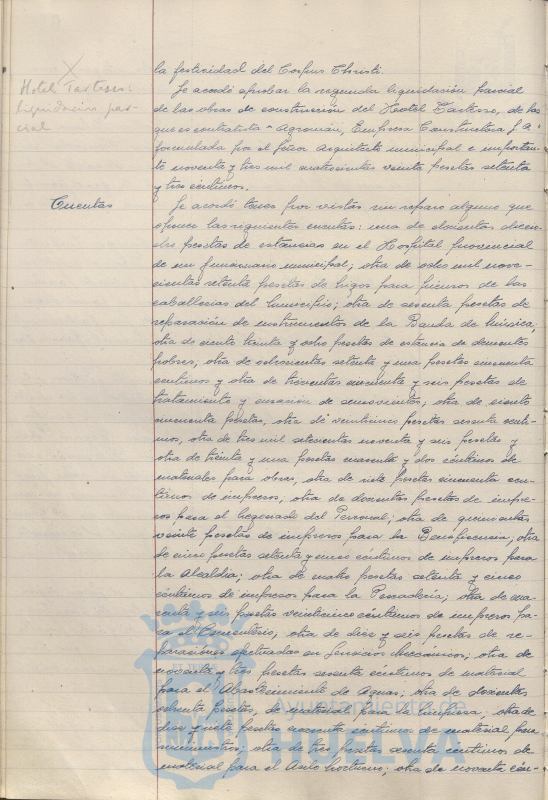 la festividad del Corpus Christi.
Hotel Tartesso:
liquidación par-
cial
Se acordó aprobar la segunda liquidación parcial
de las obras de construcción del Hotel Tartesso, de las
que es contratista "Agroman, Empresa Constructora S. A."
formulada por el Señor Arquitecto municipal e importan-
te noventa y tres mil cuatrocientas veinte pesetas setenta
y tres céntimos.
Cuentas
Se acordó tener por vistas sin reparo alguno que
oponer las siguientes cuentas: una de doscientas
pesetas de estancias en el Hospital provincial
de un funcionario municipal; otra de ocho mil nove-
cientas setenta pesetas de para pienso de las
caballerías del Municipio; otra de sesenta pesetas de
reparación de instrumentos de la Banda de Música;
otra de ciento treinta y ocho pesetas de estancia de dementes
pobres, otra de ochocientas setenta y una pesetas cincuenta
céntimos y otra de trescientas cincuenta y seis pesetas de
tratamiento y curación de semovientes; otra de ciento
cincuenta pesetas, otra de veinticinco pesetas sesenta cénti-
mos, otra de tres mil setecientas noventa y seis pesetas y
otra de treinta y una pesetas cuarenta y dos céntimos de
materiales para obras, otra de siete pesetas cincuenta cén-
timos de impresos, otra de doscientas pesetas de impre-
sos para el Negociado del Personal; otra de quinientas
veinte pesetas de impresos para la Beneficencia; otra
de cinco pesetas setenta y cinco céntimos de impresos para
la Alcaldía; otra de cuatro pesetas setenta y cinco
céntimos de impresos para la Pescadería; otra de cua-
renta y seis pesetas veinticinco céntimos de impresos pa-
ra el Cementerio, otra de diez y seis pesetas de re-
paraciones efectuadas en Servicios Mecánicos; otra de
noventa y tres pesetas sesenta céntimos de material
para el Abastecimiento de Aguas; otra de doscientas
ochenta pesetas, de material para la limpieza, otra de
diez y siete pesetas sesenta céntimos de material para
suministros; otra de tres pesetas sesenta céntimos de
material para el Asilo nocturno; otra de noventa cén-
Ayuntamiento de
HUELVA